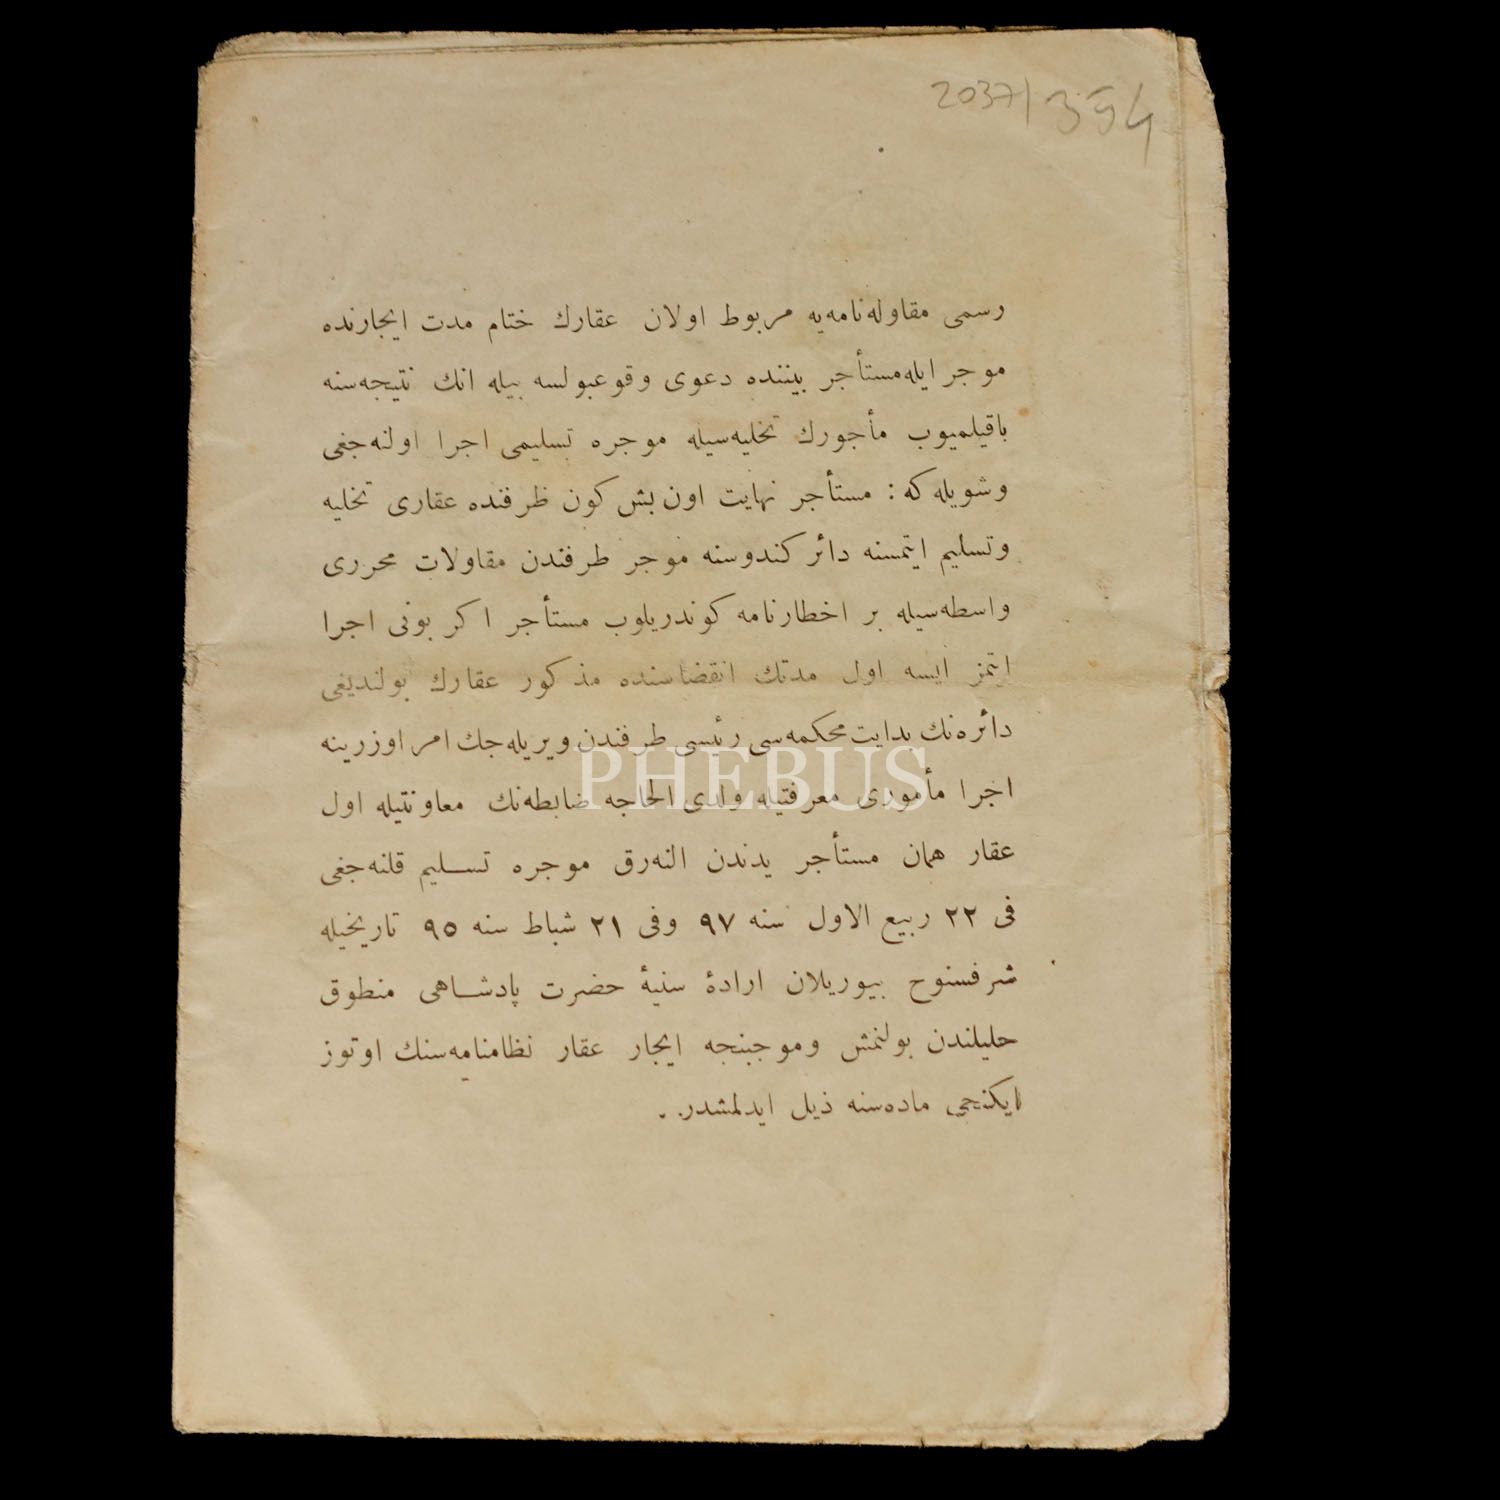 2037/354
رسمی مقاوله‌نامه‌یه مربوط اولان عقارك ختام مدت ایجارنده
موجر ایله مستأجر بیننده دعوی وقوعبولسه بیله انك نتیجه‌سنه
باقیلمیوب مأجورك تخلیه‌سیله موجره تسلیمی اجرا اولنه‌جغی
وشویله که : مستأجر نهایت اون بش کون ظرفنده عقاری تخلیه
وتسلیم ایتمسنه دائر کندوسنه موجر طرفندن مقاولات محرری
واسطه‌سیله بر اخطارنامه کوندریلوب مستأجر اکر بونی اجرا
ایتمز ایسه اول مدتك انقضاسنده مذکور عقارك بولندیغی
دائره‌نك بدایت محکمه‌سی رئیسی طرفندن ویریله‌جك امر اوزرینه
PHEBUS
اجرا مأموری معرفتیله ولدی الحاجه ضابطه‌نك معاونتیله اول
عقار همان مستأجر یدندن النه‌رق موجره تسلیم قلنه‌جغی
فی ٢٢ ربیع الاول سنه ٩٧ وفی ٢١ شباط سنه ٩٥ تاریخیله
شرفسنوح بیوریلان ارادهٔ سنیهٔ حضرت پادشاهی منطوق
جلیلندن بولنمش وموجبنجه ایجار عقار نظامنامه‌سنك اوتوز
ایکنجی ماده‌سنه ذیل ایدلمشدر .